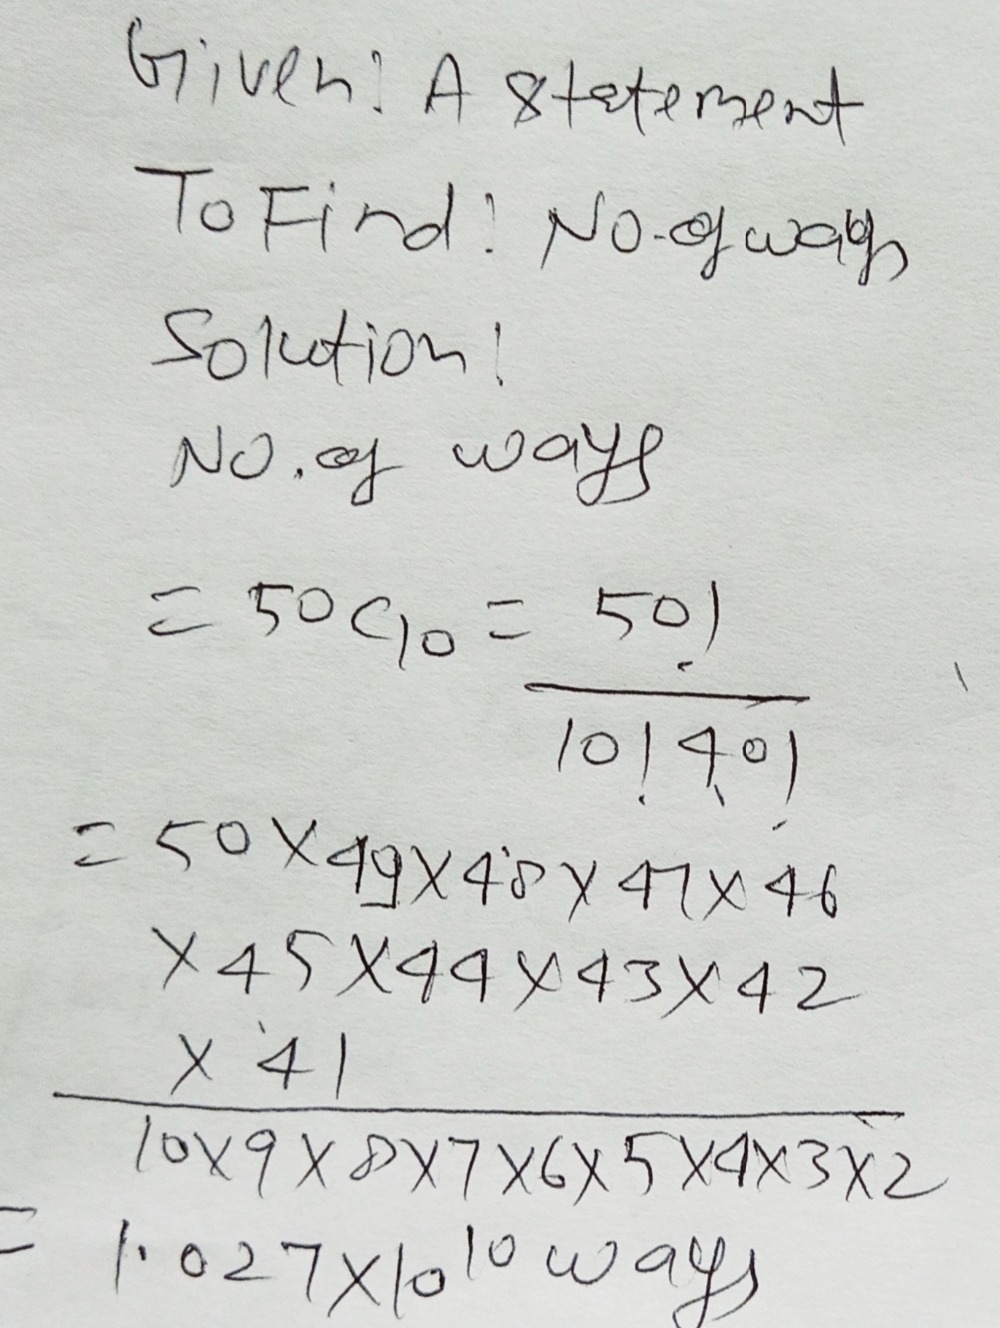 Given: A statement
To Find: No. of ways
Solution:
No. of ways
= 50C10 = 50!
10! 40!
= 50 X 49 X 48 X 47 X 46
X 45 X 44 X 43 X 42
X 41
10 X 9 X 8 X 7 X 6 X 5 X 4 X 3 X 2
= 1.027 X 10^10 ways